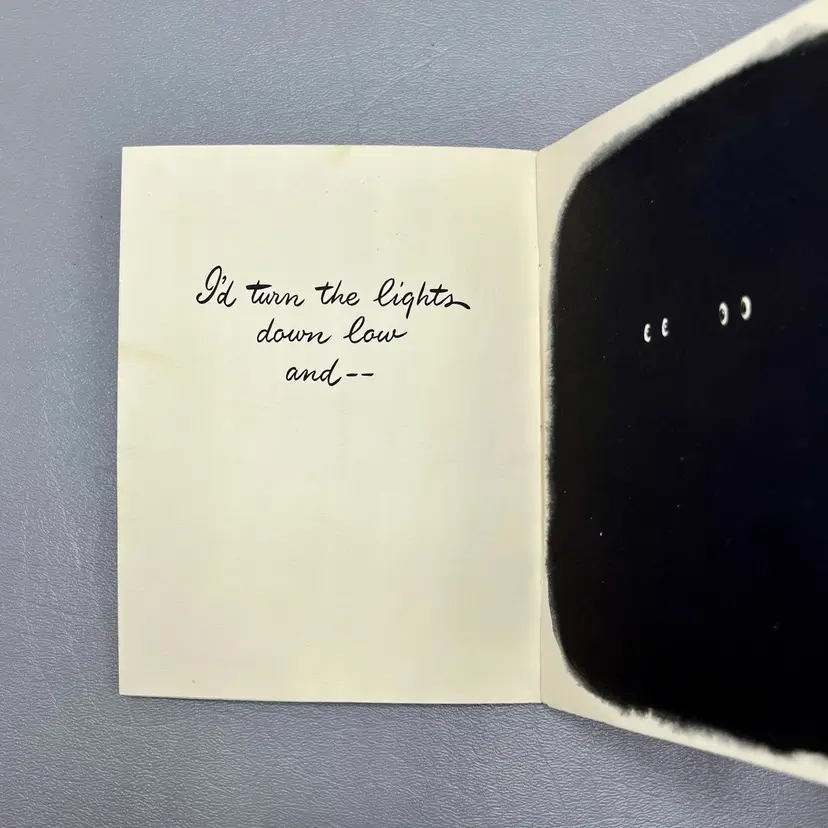 I'd turn the lights
down low
and--